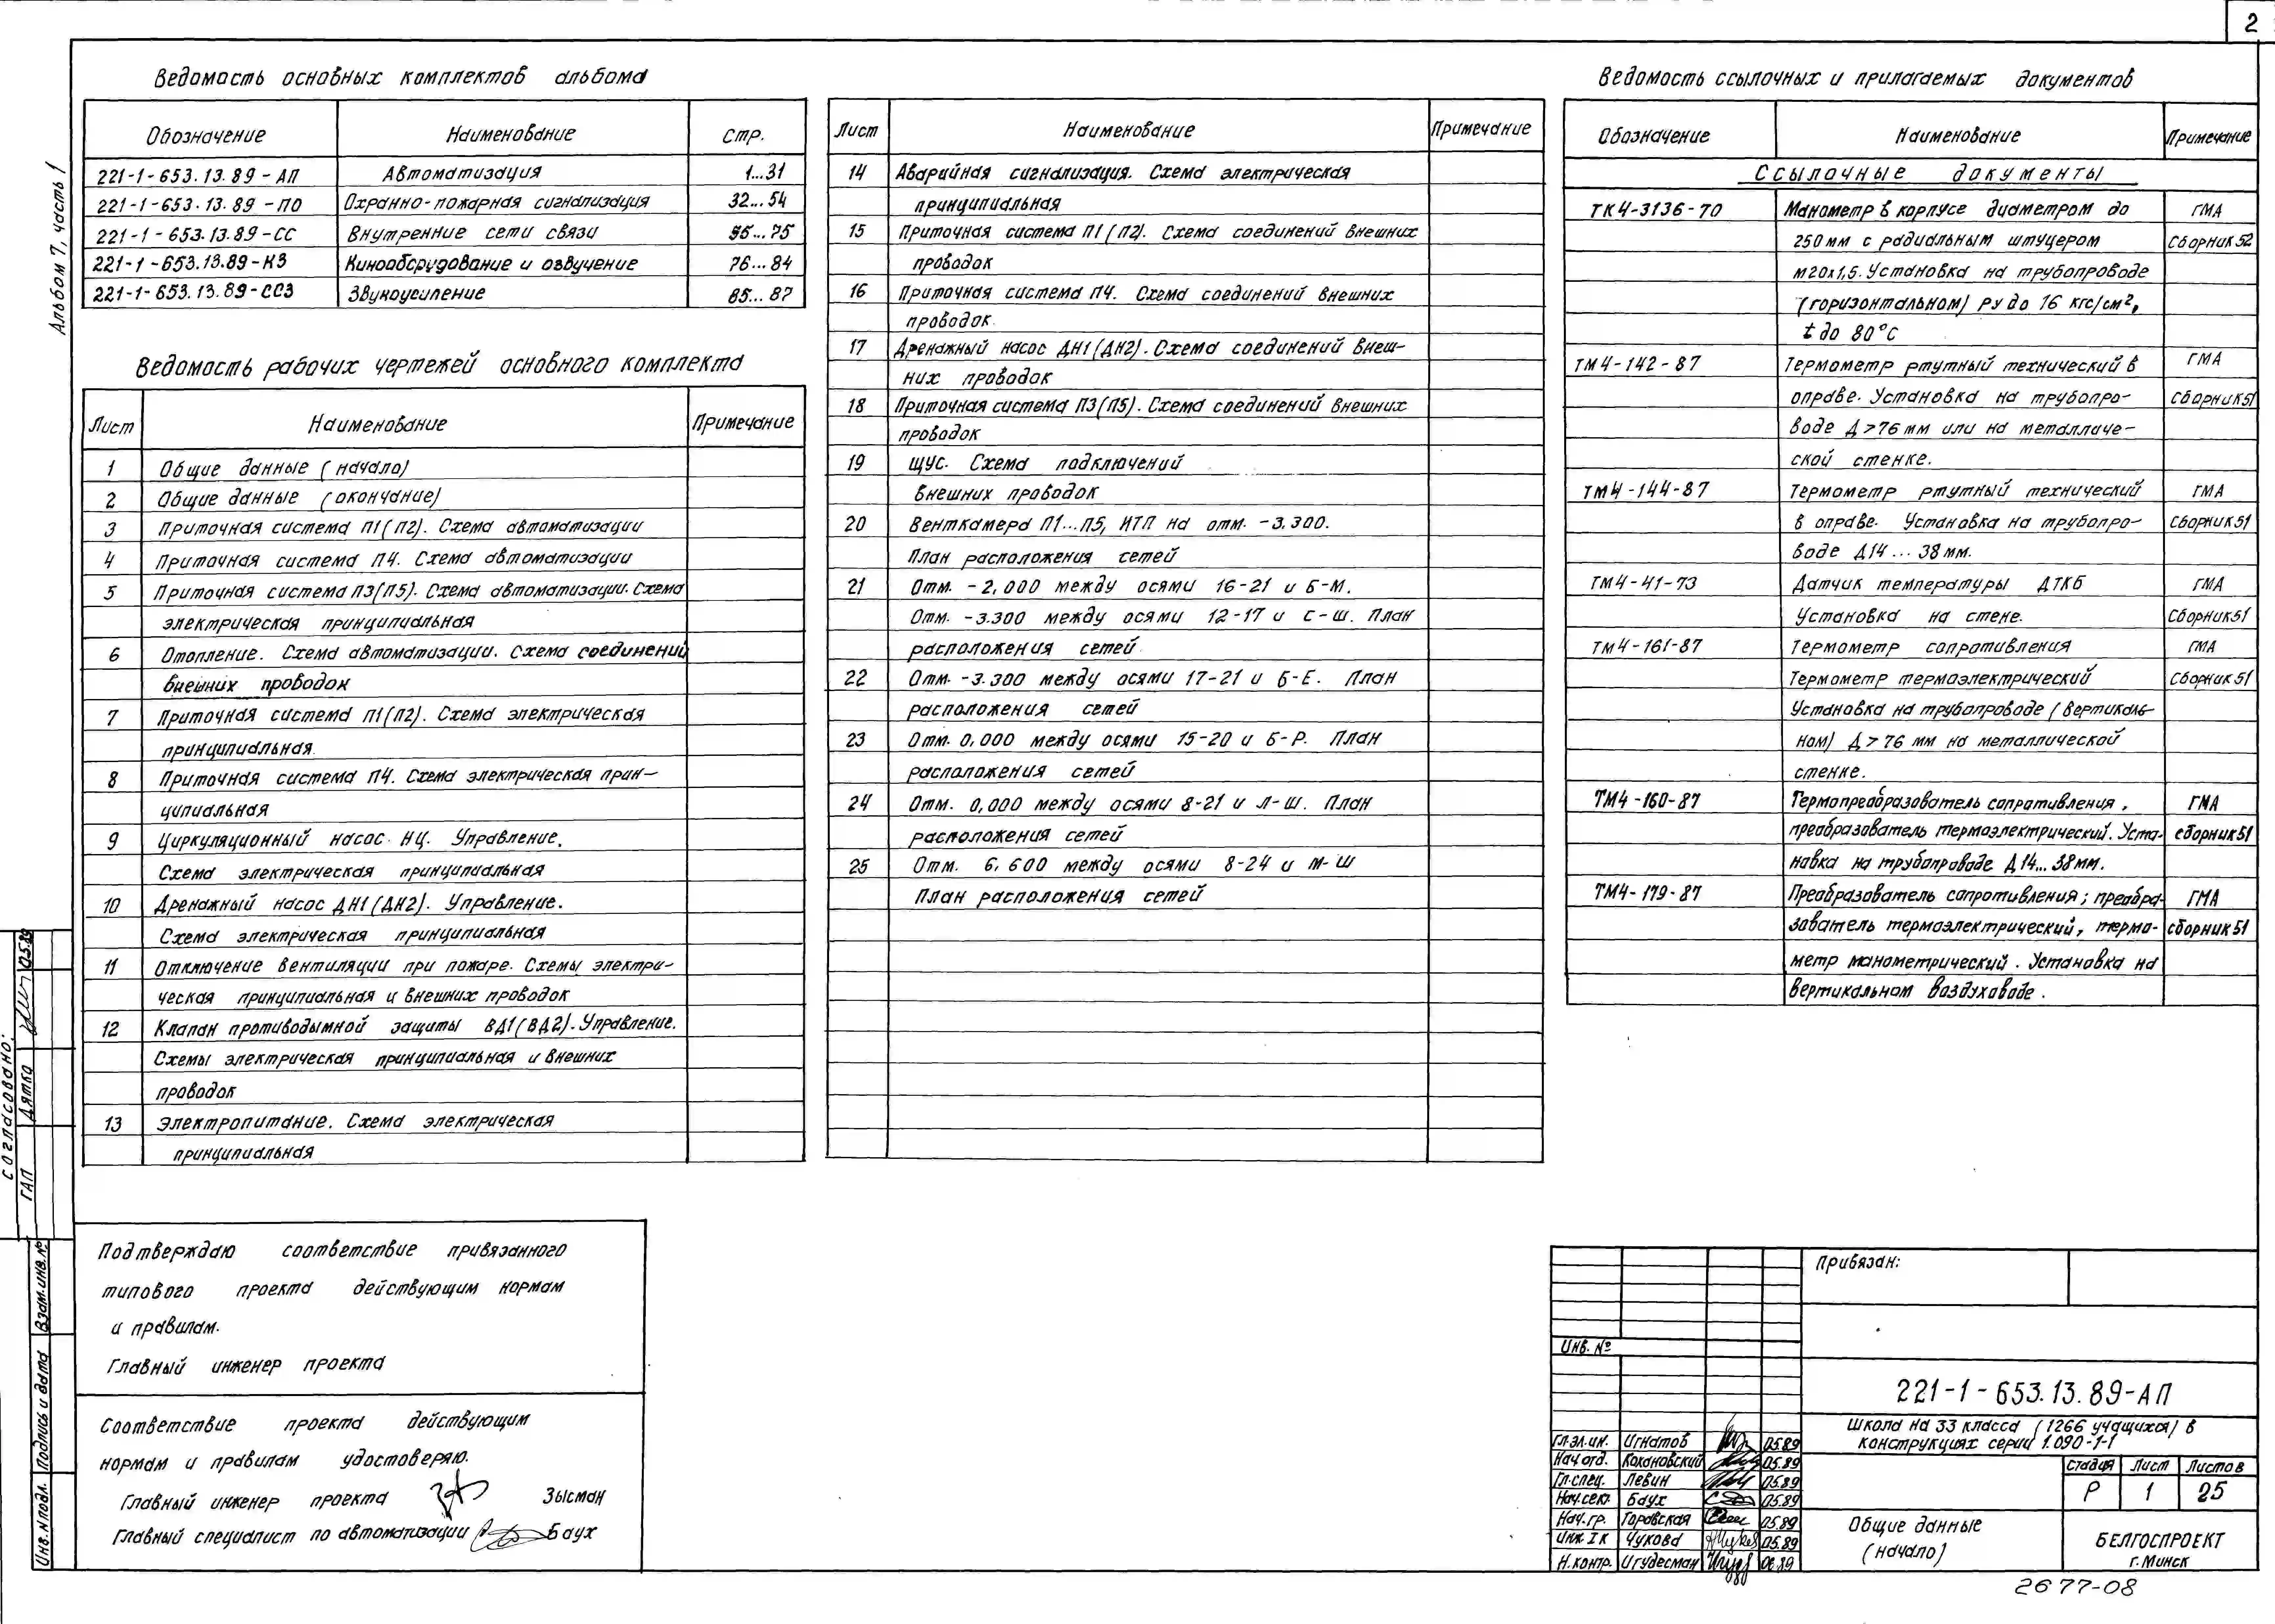 2
Альбом 7, часть 1
Ведомость основных комплектов альбома
Обозначение Наименование Стр.
221-1-653.13.89-АП Автоматизация 1...31
221-1-653.13.89-ПО Охранно-пожарная сигнализация 32...54
221-1-653.13.89-СС Внутренние сети связи 55...75
221-1-653.13.89-КЗ Кинооборудование и озвучение 76...84
221-1-653.13.89-ССЗ Звукоусиление 85...87
Ведомость рабочих чертежей основного комплекта
Лист Наименование Примечание
1 Общие данные (начало)
2 Общие данные (окончание)
3 Приточная система П1(П2). Схема автоматизации
4 Приточная система П4. Схема автоматизации
5 Приточная система П3(П5). Схема автоматизации. Схема
электрическая принципиальная
6 Отопление. Схема автоматизации. Схема соединений
внешних проводок
7 Приточная система П1(П2). Схема электрическая
принципиальная.
8 Приточная система П4. Схема электрическая прин-
ципиальная
9 Циркуляционный насос НЦ. Управление.
Схема электрическая принципиальная
10 Дренажный насос ДН1(ДН2). Управление.
Схема электрическая принципиальная
11 Отключение вентиляции при пожаре. Схемы электри-
ческая принципиальная и внешних проводок
12 Клапан противодымной защиты ВД1(ВД2). Управление.
Схемы электрическая принципиальная и внешних
проводок
13 Электропитание. Схема электрическая
принципиальная
Лист Наименование Примечание
14 Аварийная сигнализация. Схема электрическая
принципиальная
15 Приточная система П1(П2). Схема соединений внешних
проводок
16 Приточная система П4. Схема соединений внешних
проводок.
17 Дренажный насос ДН1(ДН2). Схема соединений внеш-
них проводок
18 Приточная система П3(П5). Схема соединений внешних
проводок
19 ЩУС. Схема подключений
внешних проводок
20 Венткамера П1...П5, ИТП на отм. -3.300.
План расположения сетей
21 Отм. -2,000 между осями 16-21 и Б-М.
Отм. -3.300 между осями 12-17 и С-Ш. План
расположения сетей
22 Отм. -3.300 между осями 17-21 и Б-Е. План
расположения сетей
23 Отм. 0,000 между осями 15-20 и Б-Р. План
расположения сетей
24 Отм. 0,000 между осями 8-21 и Л-Ш. План
расположения сетей
25 Отм. 6,600 между осями 8-24 и М-Ш
План расположения сетей
Ведомость ссылочных и прилагаемых документов
Обозначение Наименование Примечание
Ссылочные документы
ТК4-3136-70 Манометр в корпусе диаметром до ГМА
250 мм с радиальным штуцером Сборник 52
М20х1,5. Установка на трубопроводе
(горизонтальном) Ру до 16 кгс/см²,
t до 80°С
ТМ4-142-87 Термометр ртутный технический в ГМА
оправе. Установка на трубопро- Сборник 51
воде Д>76 мм или на металличе-
ской стенке.
ТМ4-144-87 Термометр ртутный технический ГМА
в оправе. Установка на трубопро- Сборник 51
воде Д14...38 мм.
ТМ4-41-73 Датчик температуры ДТКБ ГМА
Установка на стене. Сборник 51
ТМ4-161-87 Термометр сопротивления ГМА
Термометр термоэлектрический Сборник 51
Установка на трубопроводе (вертикаль-
ном) Д>76 мм на металлической
стенке.
ТМ4-160-87 Термопреобразователь сопротивления, ГМА
преобразователь термоэлектрический. Уста- сборник 51
новка на трубопроводе Д14...38мм.
ТМ4-179-87 Преобразователь сопротивления; преобра- ГМА
зователь термоэлектрический, термо- сборник 51
метр манометрический. Установка на
вертикальном воздуховоде.
Согласовано:
ГАП Дятко 05.89
Взам.инв.№
Подпись и дата
Инв.№подл.
Подтверждаю соответствие привязанного
типового проекта действующим нормам
и правилам.
Главный инженер проекта
Соответствие проекта действующим
нормам и правилам удостоверяю.
Главный инженер проекта Зысман
Главный специалист по автоматизации Баух
Привязан:
Инв. №
221-1-653.13.89-АП
Школа на 33 класса (1266 учащихся) в
конструкциях серии 1.090-1-1
Гл.эл.ин. Игнатов 05.89
Нач.отд. Кохановский 05.89
Гл.спец. Левин 05.89
Нач.сек. Баух 05.89
Нач.гр. Горовская 05.89
Инж.I К Чукова 05.89
Н.контр. Игудесман 06.89
Стадия Лист Листов
Р 1 25
Общие данные
(начало)
БЕЛГОСПРОЕКТ
г. Минск
2677-08